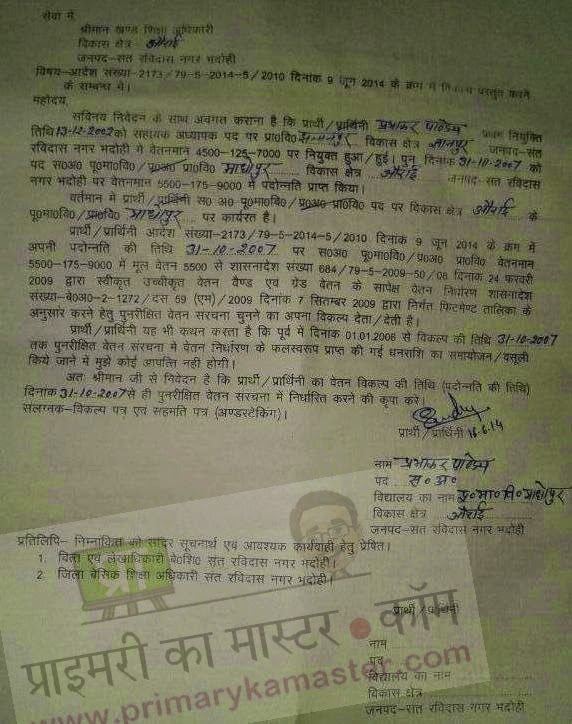 सेवा में,
श्रीमान खण्ड शिक्षा अधिकारी
विकास क्षेत्र औराई
जनपद–सत रविदास नगर भदोही
विषय–आदेश संख्या–2173/79–5–2014–5/2010 दिनांक 9 जून 2014 के क्रम में विकल्प प्रस्तुत करने
के सम्बन्ध मे।
महोदय,
सविनय निवेदन के साथ अवगत कराना है कि प्रार्थी/प्रार्थिनी प्रभाकर पाण्डेय प्रथम नियुक्ति
तिथि 13-12-2002 को सहायक अध्यापक पद पर प्रा०वि० विकास क्षेत्र ज्ञानपुर जनपद–सत
रविदास नगर भदोही मे वेतनमान 4500–125–7000 पर नियुक्त हुआ/हुई। पुन दिनांक 31-10-2007 को
पद स०अ० पू०मा०वि०/प्र०अ० प्रा०वि० माधोपुर विकास क्षेत्र औराई जनपद–सत रविदास
नगर भदोही पर वेतनमान 5500–175–9000 में पदोन्नति प्राप्त किया।
वर्तमान में प्रार्थी/प्रार्थिनी स० अ० पू०मा०वि०/प्र०अ० प्रा०वि० पद पर विकास क्षेत्र औराई के
पू०मा०वि०/प्रा०वि० माधोपुर पर कार्यरत है।
प्रार्थी/प्रार्थिनी आदेश संख्या–2173/79–5–2014–5/2010 दिनांक 9 जून 2014 के क्रम में
अपनी पदोन्नति की तिथि 31-10-2007 पर स०अ० पू०मा०वि०/प्र०अ० प्रा०वि० वेतनमान
5500–175–9000 में मूल वेतन 5500 से शासनादेश संख्या 684/79–5–2009–50/08 दिनांक 24 फरवरी
2009 द्वारा स्वीकृत उच्चीकृत वेतन वैण्ड एवं ग्रेड वेतन के सापेक्ष वेतन निर्धारण शासनादेश
संख्या–वे०आ०–2–1272/दस 59 (एम)/2009 दिनांक 7 सितम्बर 2009 द्वारा निर्गत फिटमेण्ट तालिका के
अनुसार करने हेतु पुनरीक्षित वेतन संरचना चुनने का अपना विकल्प देता/देती है।
प्रार्थी/प्रार्थिनी यह भी कथन करता है कि पूर्व में दिनांक 01.01.2006 से विकल्प की तिथि 31-10-2007
तक पुनरीक्षित वेतन संरचना मे वेतन निर्धारण के फलस्वरूप प्राप्त की गई धनराशि का समायोजन/वसूली
किये जाने में मुझे कोई आपत्ति नही होगी।
अतः श्रीमान जी से निवेदन है कि प्रार्थी/प्रार्थिनी का वेतन विकल्प की तिथि (पदोन्नति की तिथि)
दिनांक 31-10-2007 से ही पुनरीक्षित वेतन सरचना में निर्धारित करने की कृपा करे।
सलग्नक–विकल्प पत्र एवं सहमति पत्र (अण्डरटेकिंग)।
प्रार्थी/प्रार्थिनी 16.6.14
नाम प्रभाकर पाण्डेय
पद स० अ०
विद्यालय का नाम पू० मा० वि० माधोपुर
विकास क्षेत्र औराई
जनपद–सत रविदास नगर भदोही
प्रतिलिपि– निम्नांकित को सादर सूचनार्थ एवं आवश्यक कार्यवाही हेतु प्रेषित।
1. वित्त एवं लेखाधिकारी बे०शि० सत रविदास नगर भदोही।
2. जिला बेसिक शिक्षा अधिकारी संत रविदास नगर भदोही।
प्रार्थी/प्रार्थिनी
नाम
पद
विद्यालय का नाम
विकास क्षेत्र
जनपद–सत रविदास नगर भदोही
प्राइमरी का मास्टर ● कॉम
www.primarykamaster.com